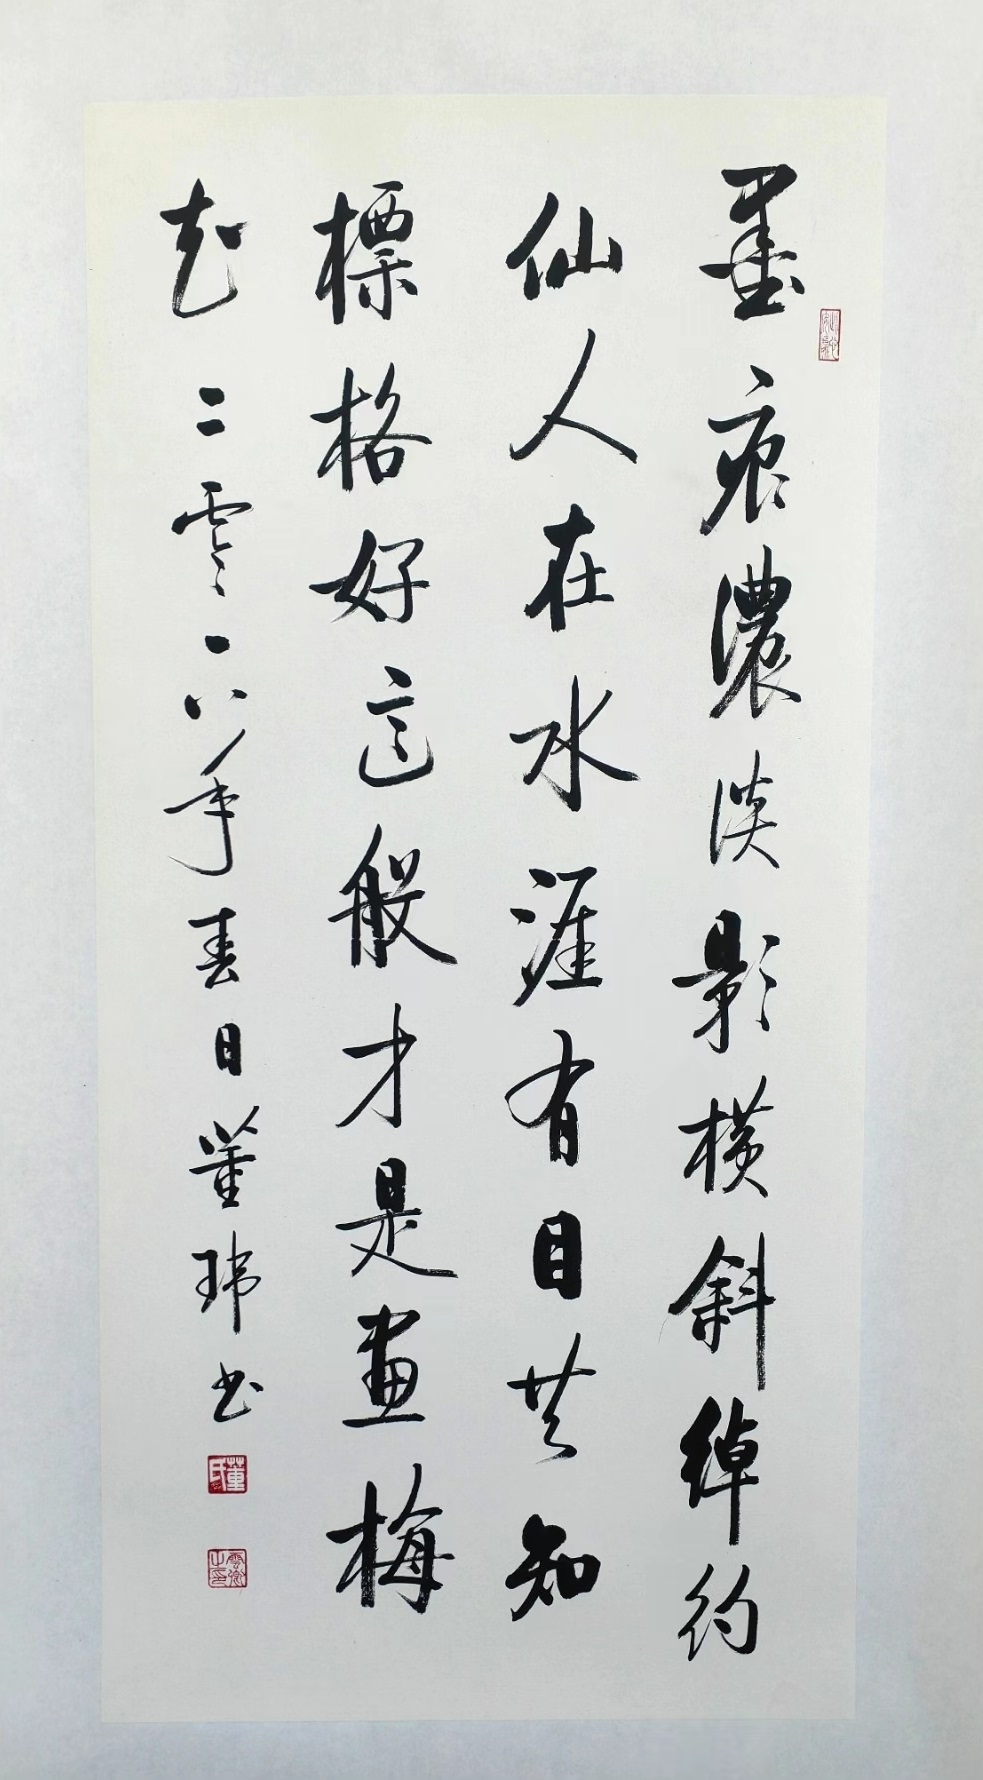 墨痕濃淡影橫斜綽約
仙人在水涯有目共知
標格好這般才是畫梅
花 二零一八年春日董瑋书
董氏